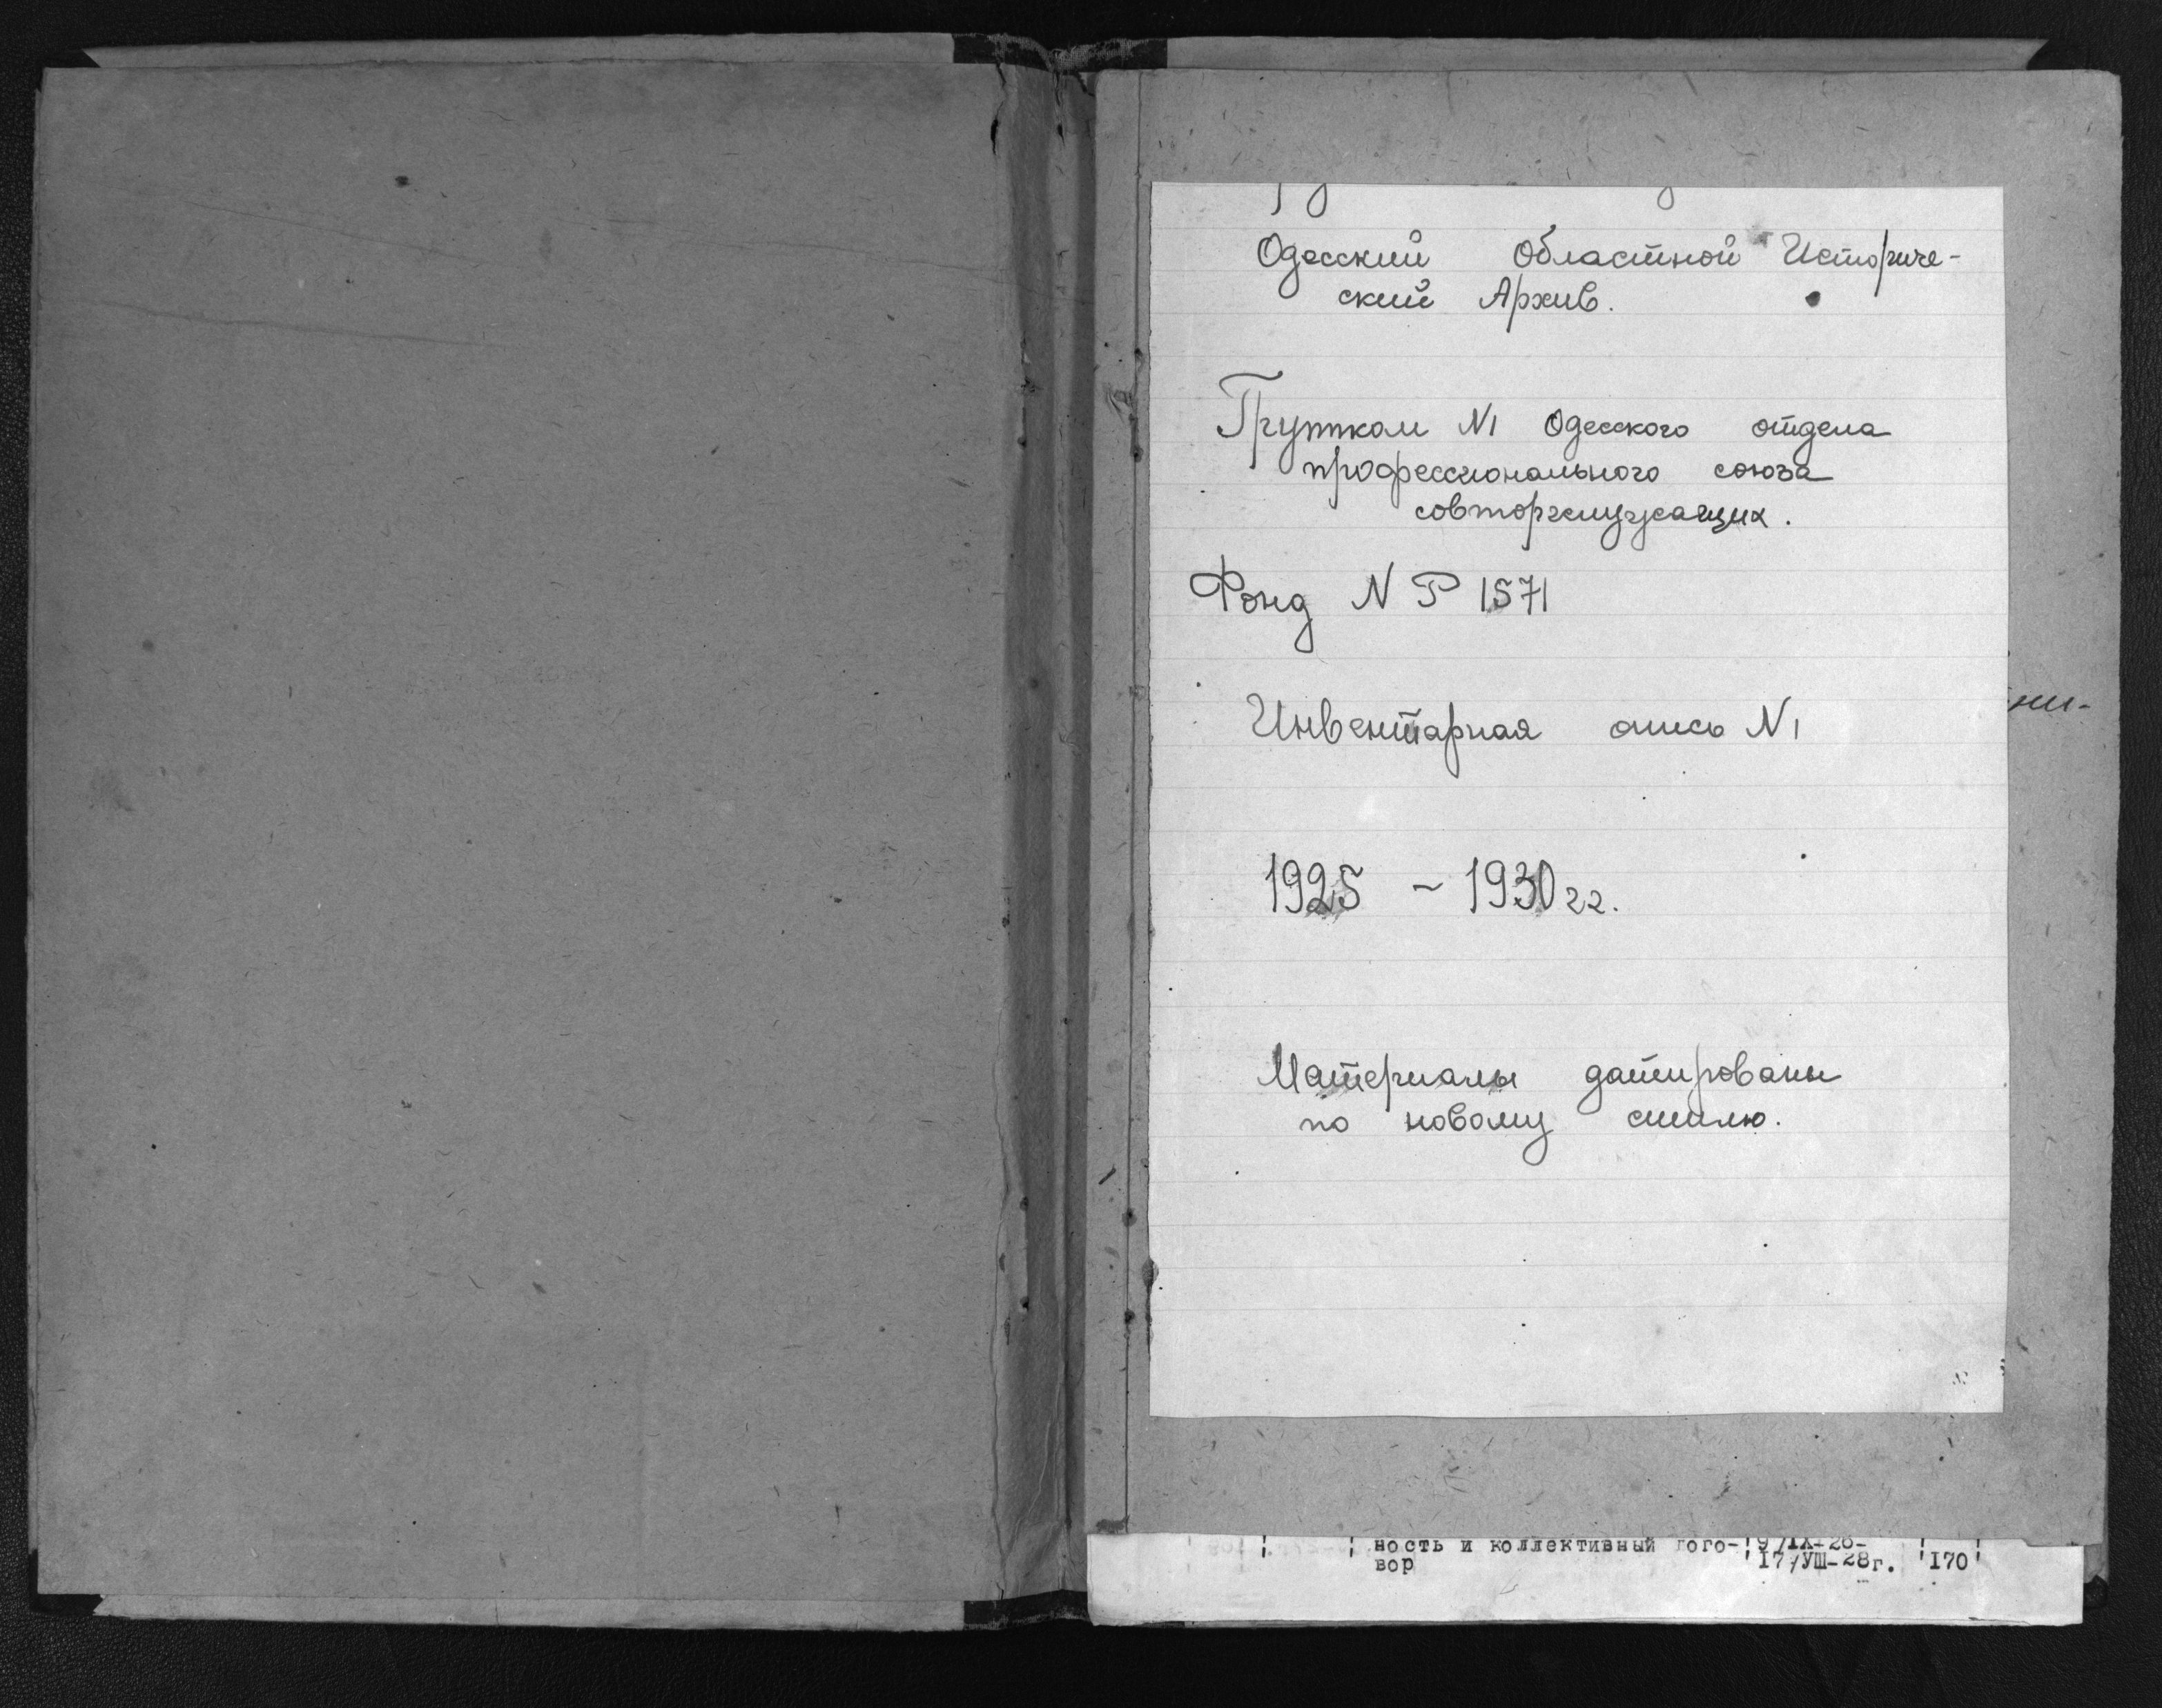 Одесский Областной Историче-
ский Архив.
Группком N1 Одесского отдела
профессионального союза
совторгслужащих.
Фонд N Р 1571
Инвентарная опись N1
1925 - 1930 гг.
Материалы датированы
по новому стилю.
ни-
ность и коллективный дого- 9/IX-26-
вор 17/УШ-28г. 170